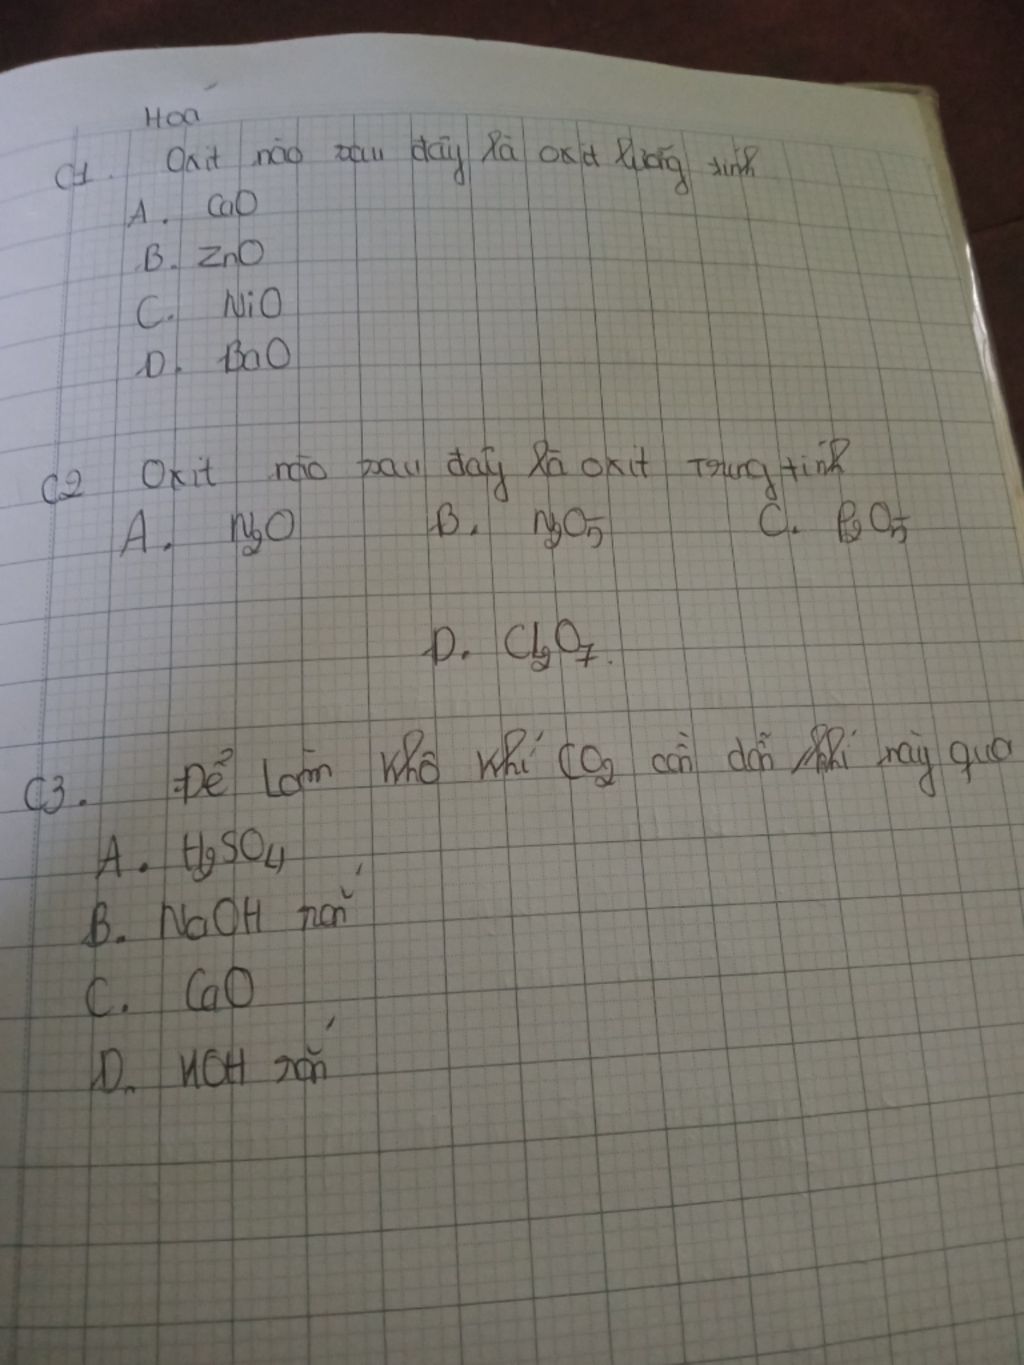 Hoá
C1. Oxit nào sau đây là oxit lưỡng tính
A. CaO
B. ZnO
C. NiO
D. BaO
C2 Oxit nào sau đây là oxit trung tính
A. N2O B. N2O5 C. P2O5
D. Cl2O7.
C3. Để làm khô khí CO2 cần dẫn khí này qua
A. H2SO4
B. NaOH rắn
C. CaO
D. KOH rắn